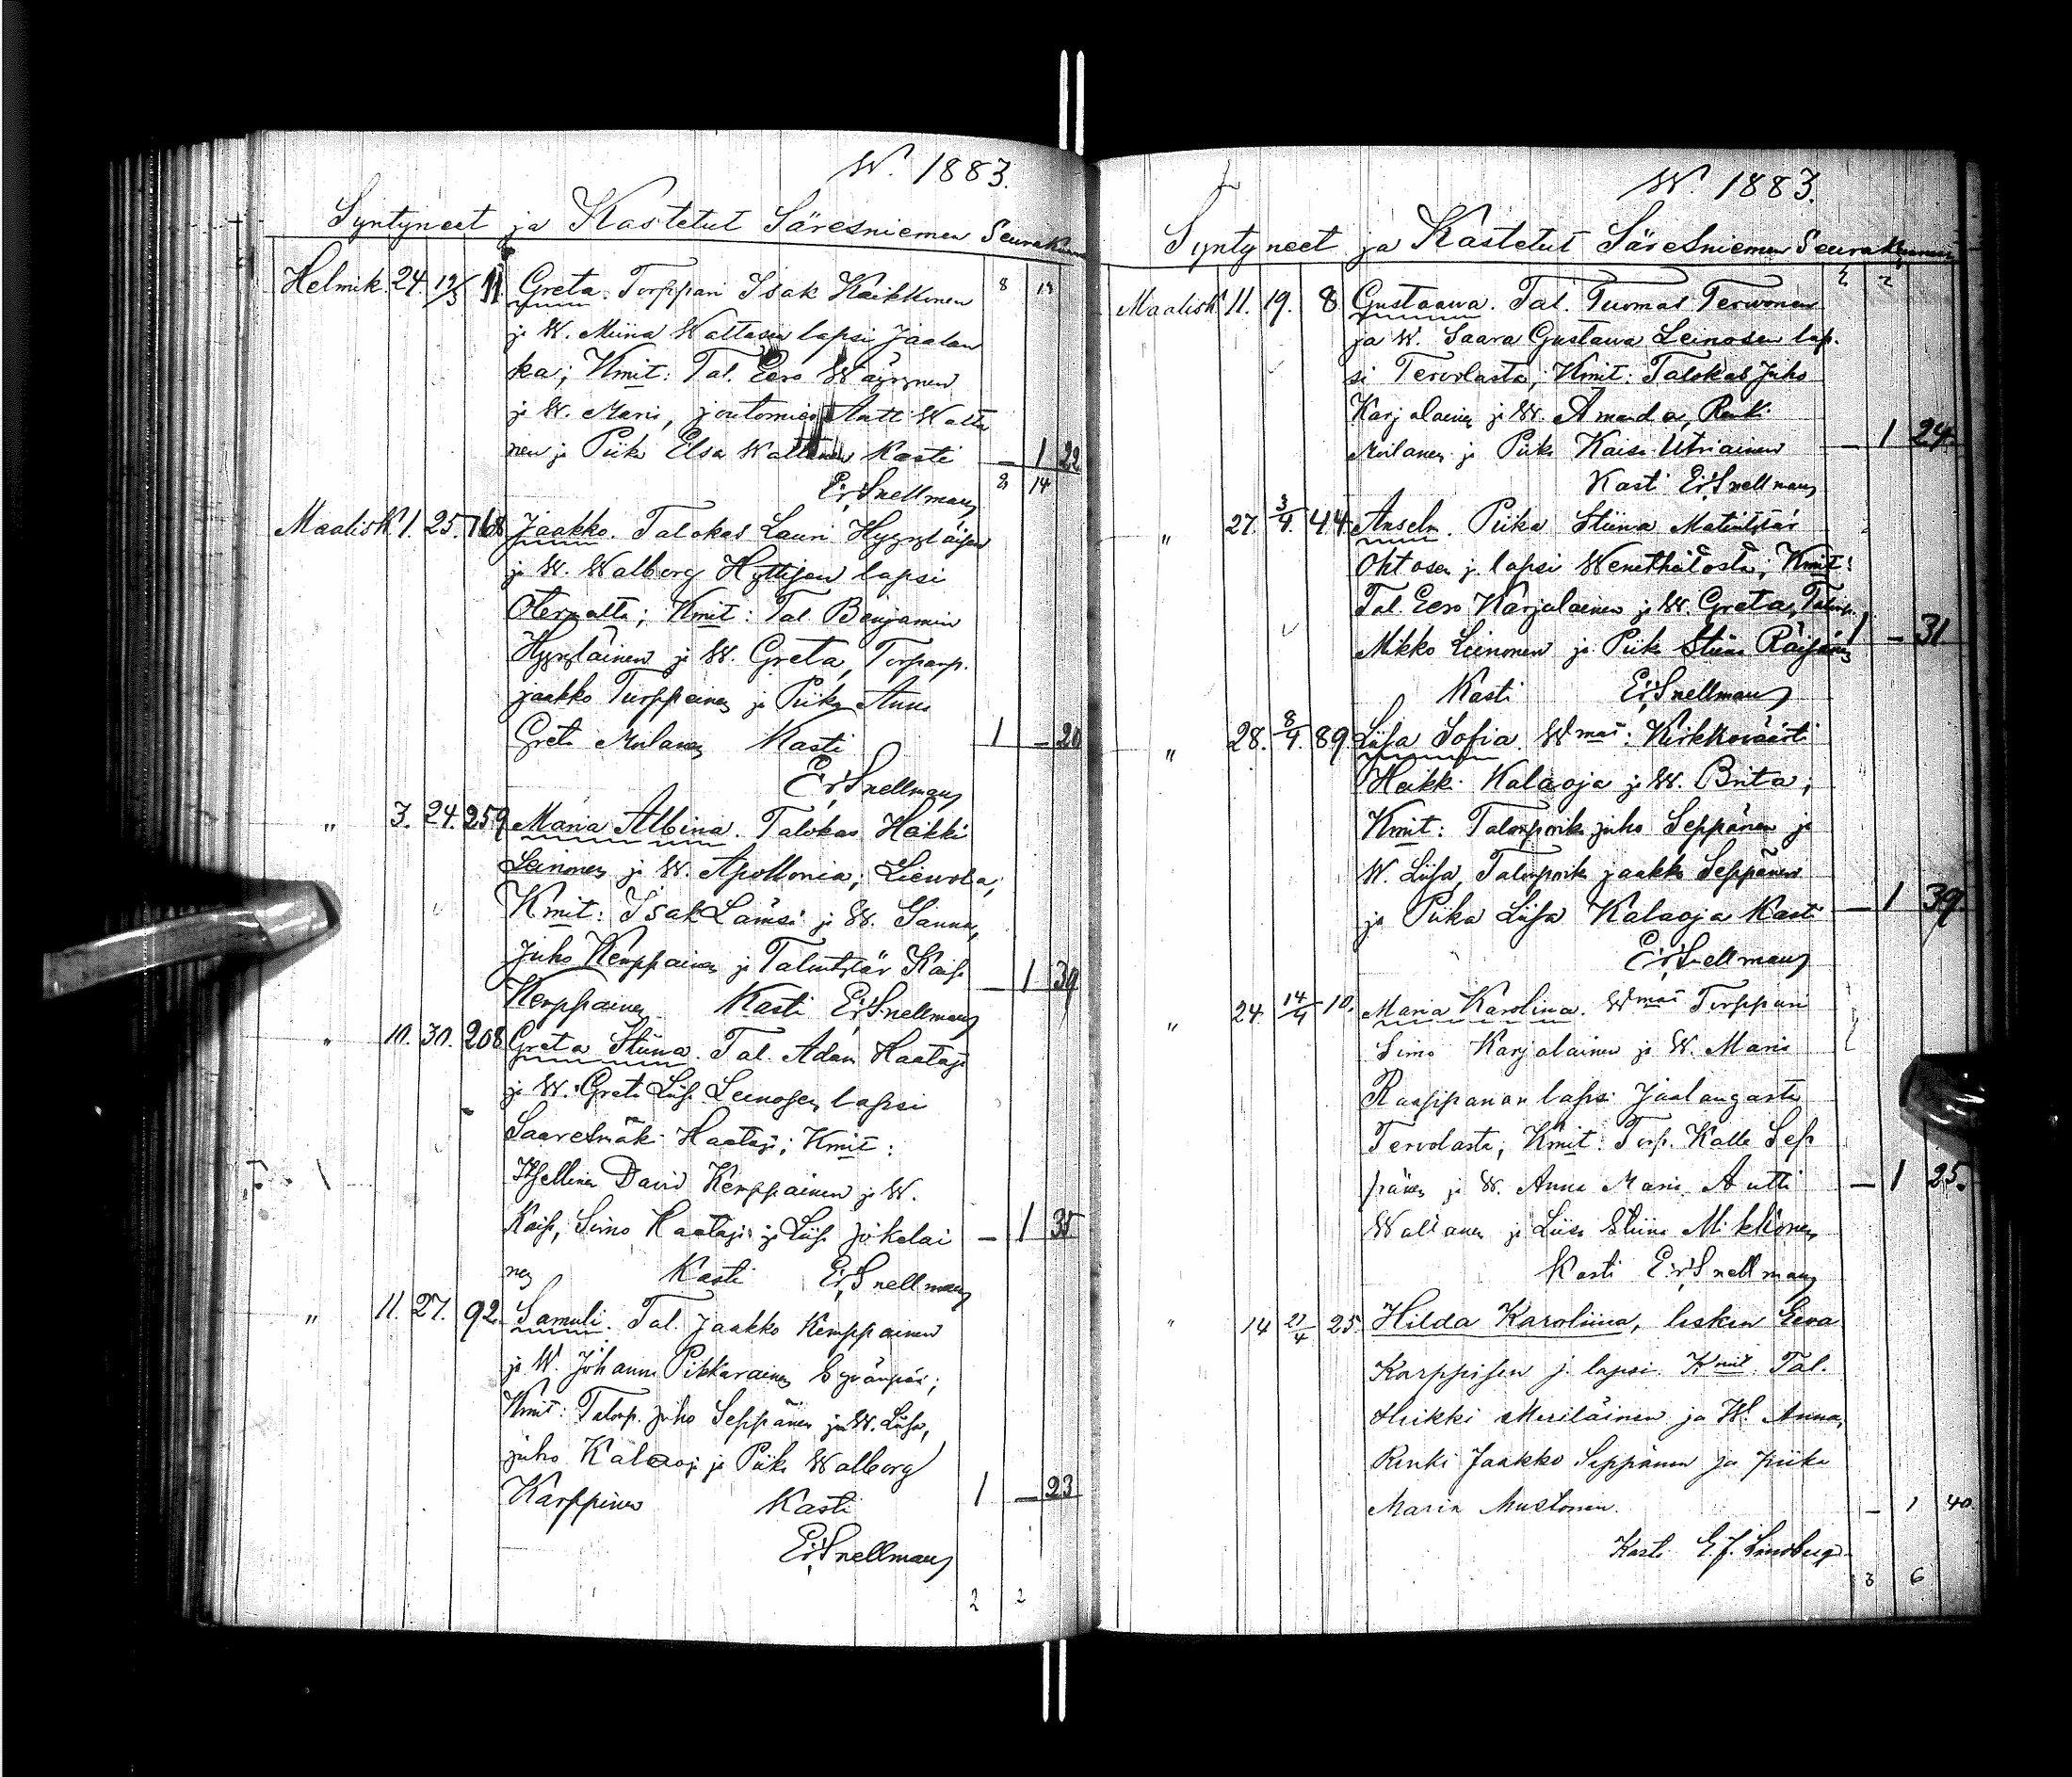 W. 1883.
Syntyneet ja Kastetut Säresniemen Seurakun
8 13
Helmik. 24. 12/3 11 Greta. Torppari Isak Keikkonen
ja W. Miina Wattasen lapsi Jaalan
ka; Kmit: Tal. Eero Wäyrynen
ja W. Maria, joutomies Antti Watta
nen ja Piika Elsa Wattanen Kasti — 1 22
E. Snellman 8 14
Maalisk. 1. 25. 168 Jaakko. Talokas Lauri Hyyryläisen
ja W. Walborg Hyttisen lapsi
Otermalta; Kmit: Tal. Benjamin
Hyyryläinen ja W. Greta, Torparp.
Jaakko Turppainen ja Piika Anna
Greta Moilanen Kasti 1 — 20
E. Snellman
" 3. 24. 259 Maria Albina. Talokas Heikki
Leinonen ja W. Apollonia; Liewola;
Kmit: Isak Lämsä ja W. Sanna,
Juho Kemppainen ja Talontytär Kaisa — 1 39
Kemppainen Kasti E. Snellman
" 10. 30. 208 Greta Stiina. Tal. Adam Haataja
ja W. Greta Liisa Leinosen lapsi
Saaresmäki Haataja; Kmit:
Itsellinen David Kemppainen ja W.
Kaisa, Simo Haataja ja Liisa Jokelai — 1 35
nen Kasti E. Snellman
" 11. 27. 92. Samuli. Tal. Jaakko Kemppainen
ja W. Johanna Pikkarainen
Kmit: Talonp. Juho Seppänen ja W. Liisa,
Juho Kalaoja ja Piika Walborg
Karppinen Kasti 1 — 23
E. Snellman
2 2
W. 1883.
Syntyneet ja Kastetut Säresniemen Seurakunnassa
Maalisk. 11. 19. 8 Gustaawa. Tal. Tuomas Terwonen
ja W. Saara Gustawa Leinosen lap-
si Tervolasta; Kmit: Talokas Juho
Karjalainen ja W. Amanda, Renki
Moilanen ja Piika Kaisa Utriainen — 1 24.
Kasti E. Snellman
" 27. 3/4. 44. Anselm. Piika Stiina Matintytär
Ohtosen j. lapsi Wenetheitosta; Kmit:
Tal. Eero Karjalainen ja W. Greta, Talonp.
Mikko Leinonen ja Piika Stiina Räisänen 1 — 31
Kasti E. Snellman
" 28. 8/4. 89. Liisa Sofia. Wmat: Kirkkoväärti
Heikki Kalaoja ja W. Brita;
Kmit: Talonpoika Juho Seppänen ja
W. Liisa, Talonpoika Jaakko Seppänen
ja Piika Liisa Kalaoja Kasti — 1 39.
E. Snellman
" 24. 14/4 10. Maria Karolina. Wmat Torppari
Simo Karjalainen ja W. Maria
Raappanan lapsi Jaalangasta
Tervolasta; Kmit: Torp. Kalle Sep
pänen ja W. Anna Maria, Antti — 1 25.
Wattanen ja Liisa Stiina Mikkonen
Kasti E. Snellman
" 14 27/4 25. Hilda Karoliina, lesken Eeva
Karppisen j. lapsi. Kmit. Tal.
Heikki Meriläinen ja W. Anna,
Renki Jaakko Seppänen ja piika
Maria Mustonen. — 1 40.
Kasti E. J. Lindberg
3 6